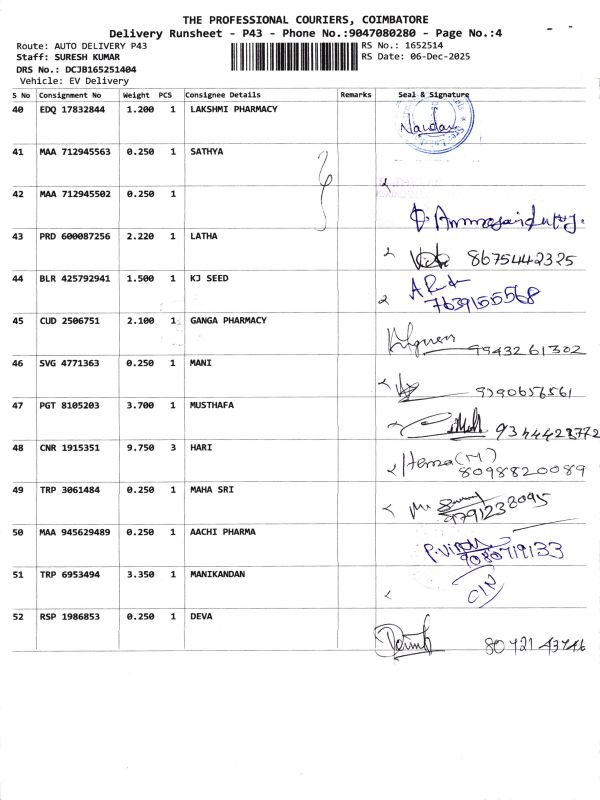 THE PROFESSIONAL COURIERS, COIMBATORE
Delivery Runsheet - P43 - Phone No.:9047080280 - Page No.:4
Route: AUTO DELIVERY P43 RS No.: 1652514
Staff: SURESH KUMAR RS Date: 06-Dec-2025
DRS No.: DCJB165251404
Vehicle: EV Delivery
S No Consignment No Weight PCS Consignee Details Remarks Seal & Signature
40 EDQ 17832844 1.200 1 LAKSHMI PHARMACY
41 MAA 712945563 0.250 1 SATHYA
42 MAA 712945502 0.250 1
43 PRD 600087256 2.220 1 LATHA 8675442325
44 BLR 425792941 1.500 1 KJ SEED 7639155568
45 CUD 2506751 2.100 1 GANGA PHARMACY 99432 61302
46 SVG 4771363 0.250 1 MANI 9390656561
47 PGT 8105203 3.700 1 MUSTHAFA
48 CNR 1915351 9.750 3 HARI Hema(M)
8098820089
49 TRP 3061484 0.250 1 MAHA SRI
50 MAA 945629489 0.250 1 AACHI PHARMA
9080719133
51 TRP 6953494 3.350 1 MANIKANDAN
52 RSP 1986853 0.250 1 DEVA